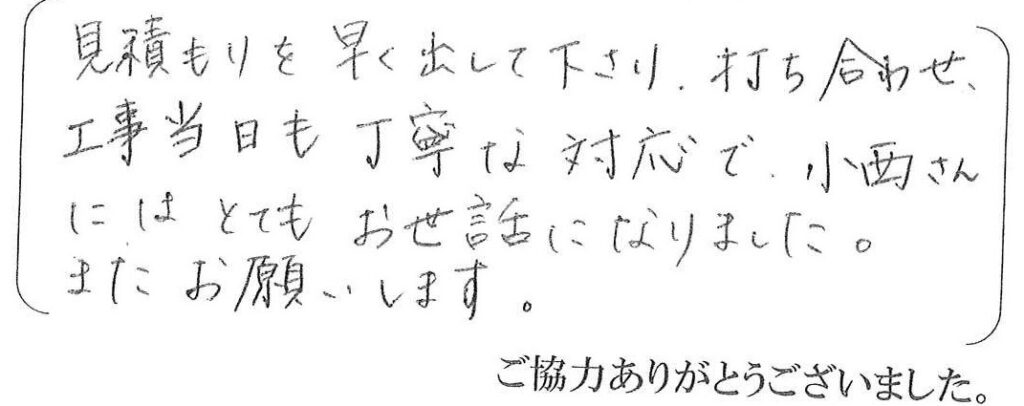 見積もりを早く出して下さり、打ち合わせ、
工事当日も丁寧な対応で、小西さん
にはとてもお世話になりました。
またお願いします。
ご協力ありがとうございました。